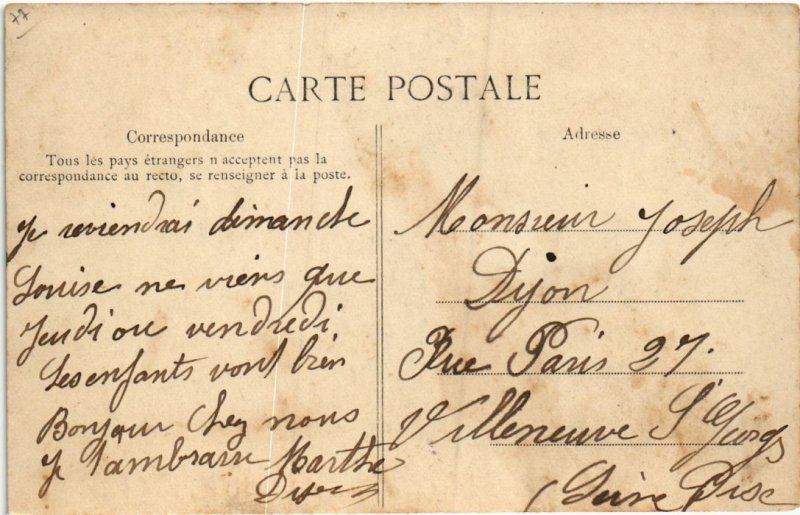 77
CARTE POSTALE
Correspondance
Tous les pays étrangers n acceptent pas la
correspondance au recto, se renseigner à la poste.
Je reviendrai dimanche
Louise ne viens que
Jeudi ou vendredi
Les enfants vont bien
Bonjour Chez nous
Je Marthe
Adresse
Monsieur Joseph
Dijon
Rue Paris 27.
Villeneuve St Georges
(Seine